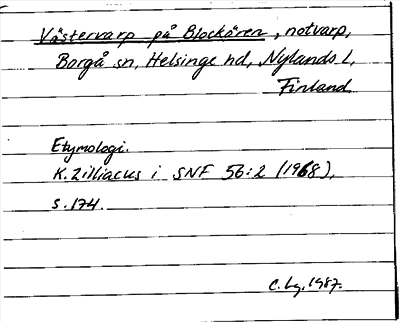 Västervarp på Blockören, notvarp,
Borgå sn, Helsinge hd, Nylands l,
Finland.
Etymologi.
K. Zilliacus i SNF 56:2 (1968),
s. 174.
C. Lg, 1987.